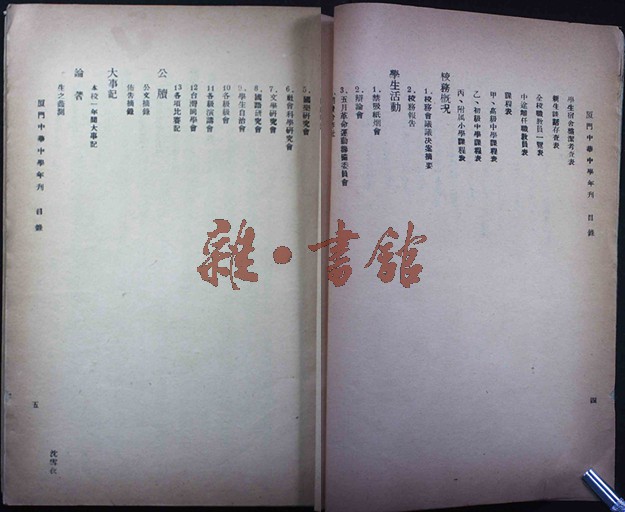 廈門中華中學年刊 目錄
學生宿舍整潔考查表
新生註冊存查表
全校職教員一覽表
中途離任職教員表
課程表
甲、高級中學課程表
乙、初級中學課程表
丙、附属小學課程表
校務概况
1、校務會議議决案摘要
2、校務報告
學生活動
1、禁毀紙烟會
2、辯論會
3、五月革命運動籌備委員會
四
5、國術研究會
6、社會科學研究會
7、文學研究會
8、國語研究會
9、學生自治會
10各級級會
11各級演講會
12台灣同學會
13各項比賽記
公牘
公文摘錄
佈告摘錄
大事記
本校一年間大事記
論著
生之意義
沈雪
廈門中華中學年刊 目錄
五
雜·書館